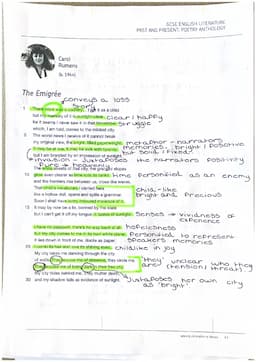 GCSE ENGLISH LITERATURE
PAST AND PRESENT: POETRY ANTHOLOGY
Carol
Rumens
(b. 1944)
The Emigrée
conveys a loss
1 There once was a country… I left it as a child
but my memory of it is sunlight-clear clear / happy
for it seems I never saw it in that November struggle
which, I am told, comes to the mildest city.
5 The worst news I receive of it cannot break metaphor - narrators
my original view, the bright, filled paperweight. memories, bright / positive
It may be at war, it may be sick with tyrants, but solid / fixed.
but I am branded by an impression of sunlight.
invasion - juxtaposes the narrators positivity
The white streets of that city, the graceful slopes
10 glow even clearer as time rolls its tanks personified as an enemy
and the frontiers rise between us, close like waves.
That child's vocabulary I carried here child-like
like a hollow doll, opens and spills a grammar. bright and precious
Soon I shall have every coloured molecule of it.
15 It may by now be a lie, banned by the state
but I can't get it off my tongue. It tastes of sunlight. Senses → vividness of
experience
I have no passport, there's no way back at all hopelessness
but my city comes to me in its own white plane. Personified to represent
It lies down in front of me, docile as paper; speakers memories
20 I comb its hair and love its shining eyes. childlike in joy
My city takes me dancing through the city
of walls. They accuse me of absence, they circle me. 'they' unclear who they
They accuse me of being dark in their free city. are (tension / threat).
My city hides behind me. They mutter death,
25 and my shadow falls as evidence of sunlight. Juxtaposes her own city
as 'bright'.